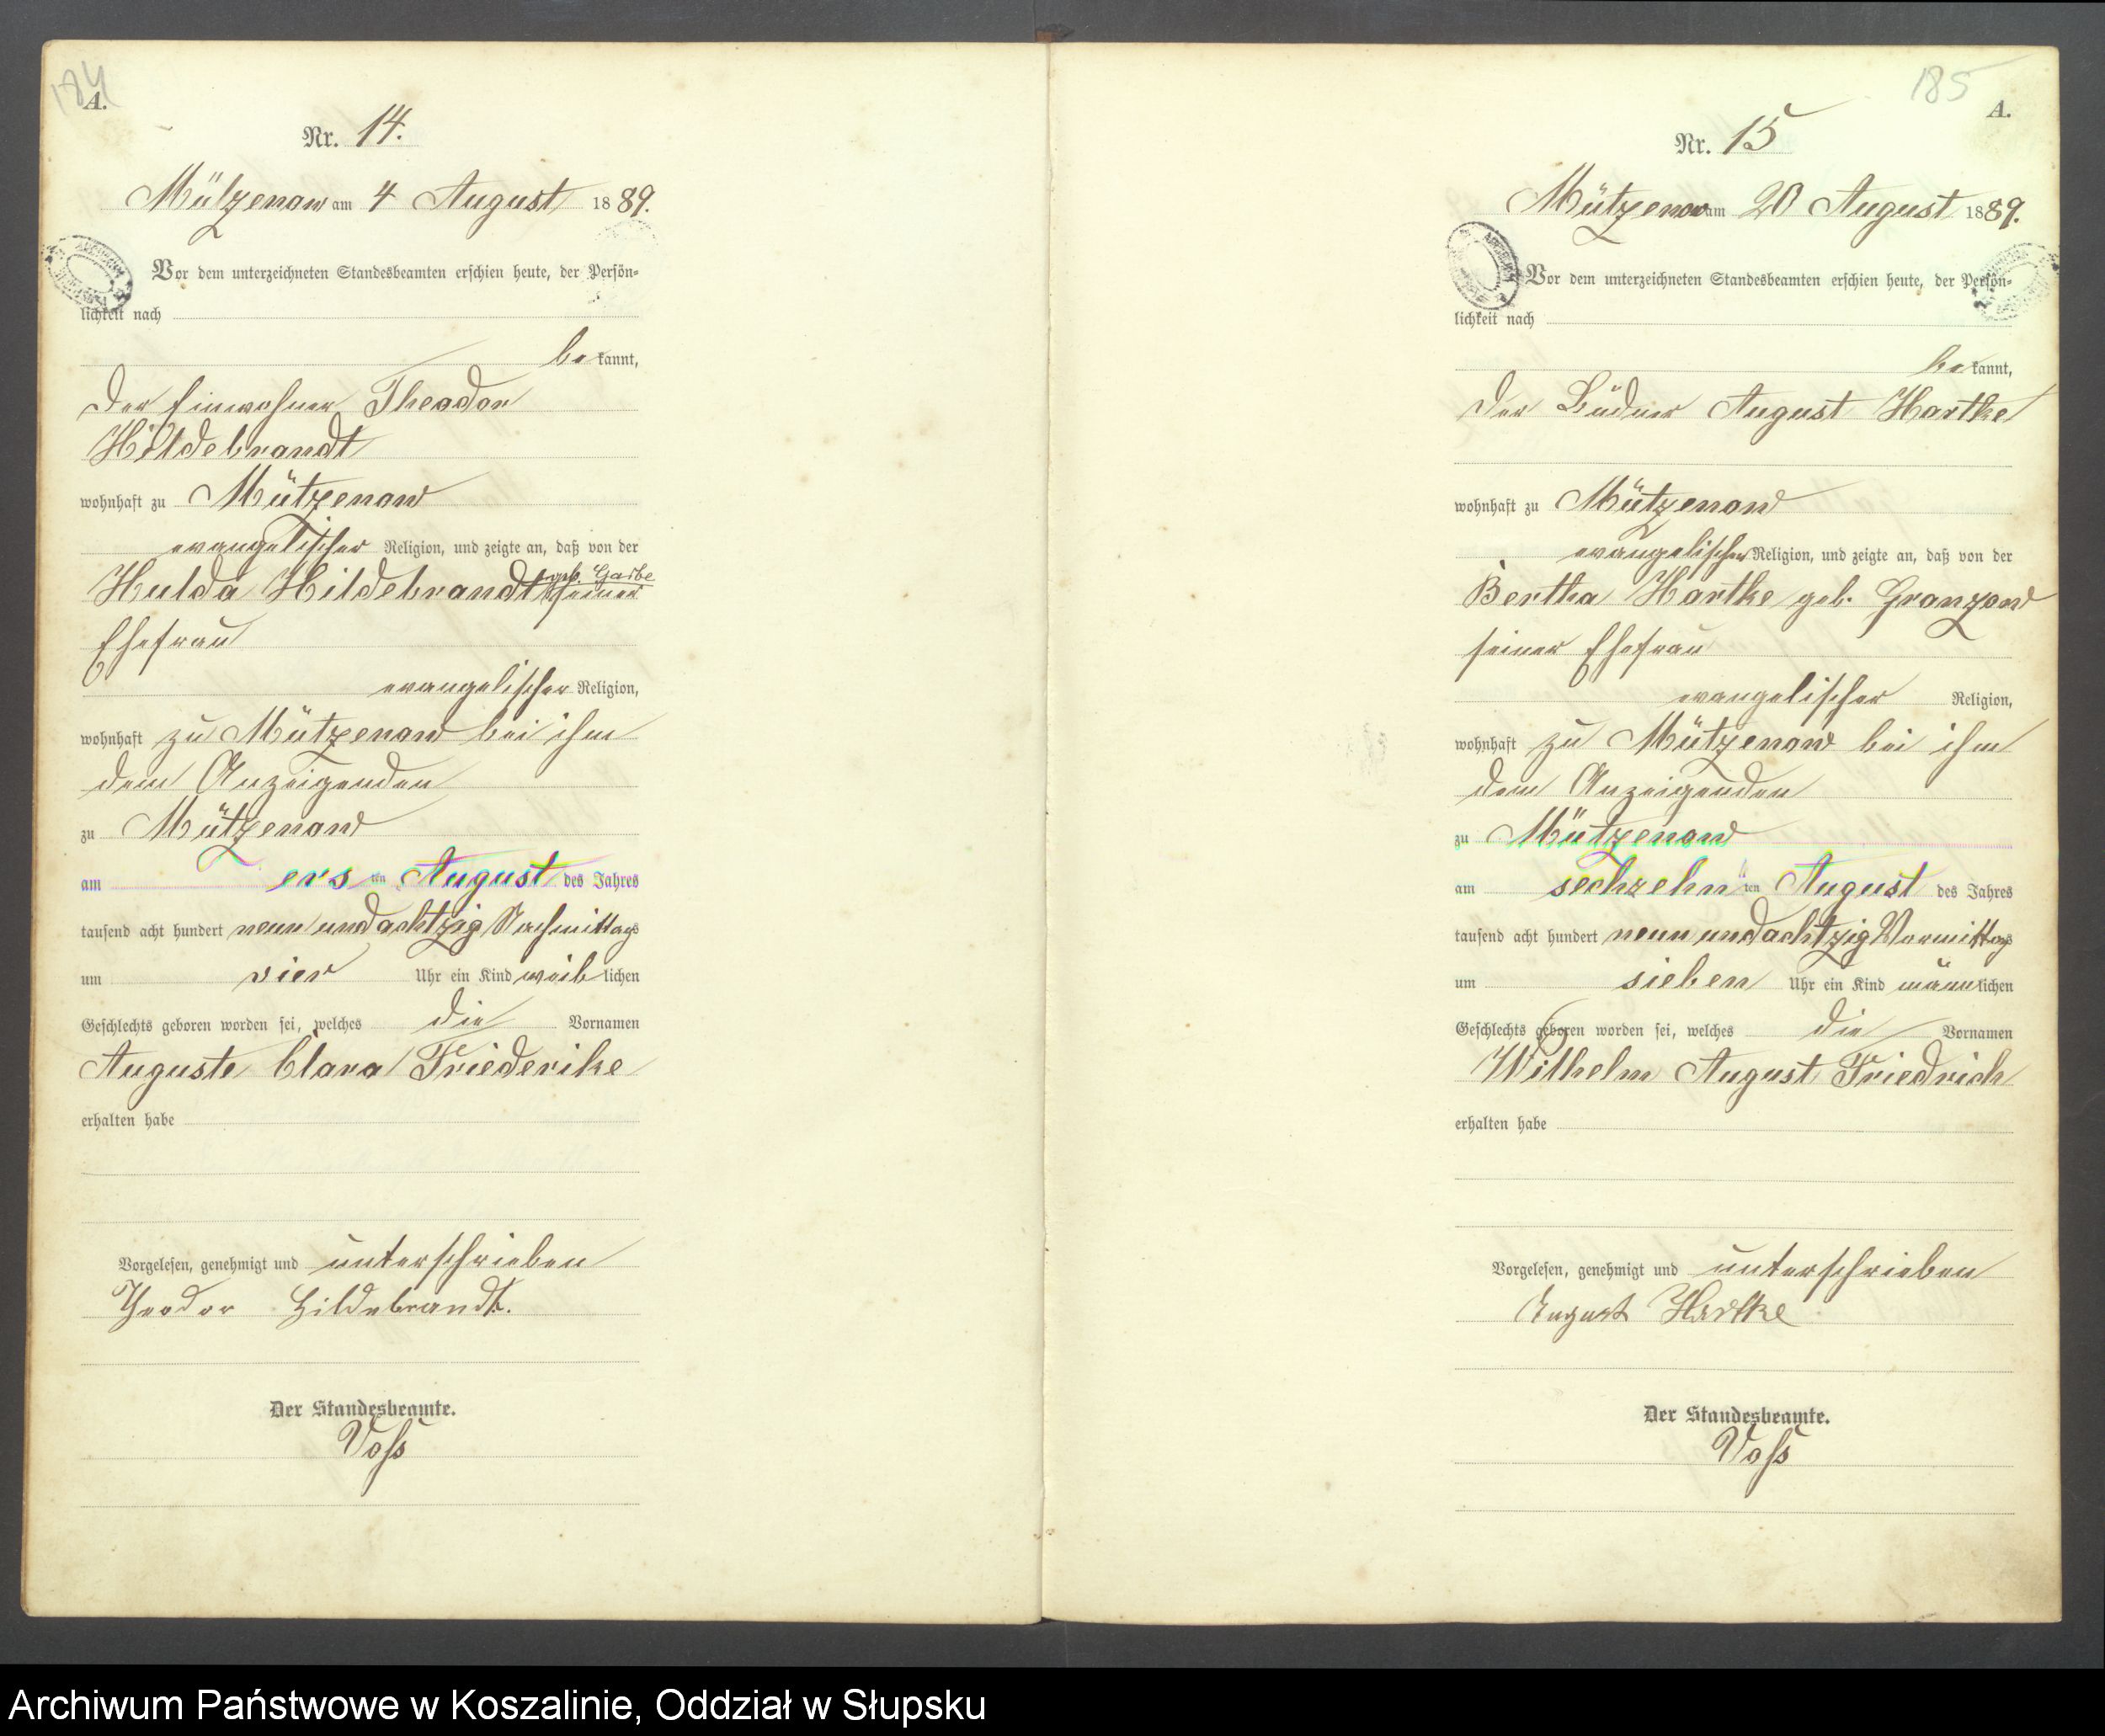 184
A.
Nr. 14.
Mützenow am 4 August 1889.
Vor dem unterzeichneten Standesbeamten erschien heute, der Persön-
lichkeit nach
bekannt,
der Einwohner Theodor
Hildebrandt
wohnhaft zu Mützenow
evangelischer Religion, und zeigte an, daß von der
geb. Garbe
Hulda Hildebrandt seiner
Ehefrau
evangelischer Religion,
wohnhaft zu Mützenow bei ihm
dem Anzeigenden
zu Mützenow
am ersten August des Jahres
tausend acht hundert neun und achtzig Nachmittags
um vier Uhr ein Kind weiblichen
Geschlechts geboren worden sei, welches die Vornamen
Auguste Clara Friederike
erhalten habe
Vorgelesen, genehmigt und unterschrieben
Theodor Hildebrandt.
Der Standesbeamte.
Voß
185
A.
Nr. 15
Mützenow am 20 August 1889.
Vor dem unterzeichneten Standesbeamten erschien heute, der Persön-
lichkeit nach
bekannt,
der Büdner August Hartke
wohnhaft zu Mützenow
evangelischer Religion, und zeigte an, daß von der
Bertha Hartke geb. Granzow
seiner Ehefrau
evangelischer Religion,
wohnhaft zu Mützenow bei ihm
dem Anzeigenden
zu Mützenow
am sechzehnten August des Jahres
tausend acht hundert neun und achtzig Vormittags
um sieben Uhr ein Kind männlichen
Geschlechts geboren worden sei, welches die Vornamen
Wilhelm August Friedrich
erhalten habe
Vorgelesen, genehmigt und unterschrieben
August Hartke
Der Standesbeamte.
Voß
Archiwum Państwowe w Koszalinie, Oddział w Słupsku